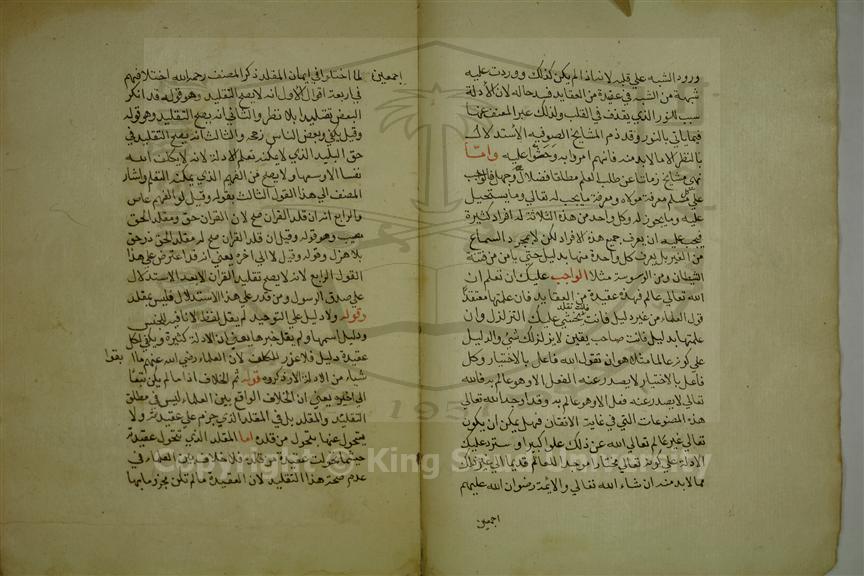 ورود الشبه على قلبه لانه اذا لم يكن كذلك ووردت عليه
شبهة من الشبه في عقيدة من العقايد فسد حاله لان الأدلة
سبب النور الذي يقذف في القلب ولذلك عبر المصنف
فيما ياتي بالنور وقد ذم المشايخ الصوفيه الاستدلال
بالنظر الا ما لا بد منه فانهم امروا به وحضوا عليه وامّا
نهي مشايخ زماننا عن طلب العلم مطلقا فضلال وجهل فالواجب
على كل مسلم معرفة مولاه ومعرفة ما يجب له تعالي وما يستحيل
عليه وما يجوز له وكل واحد من هذه الثلاثة له أفراد كثيرة
فيجب عليه ان يعرف جميع هذه الافراد لكن لا بمجرد السماع
من الغير بل يعرف كل واحدة منها بدليل حتى يامن من فتنة
الشيطان ومن الوسوسة مثلا الواجب عليك ان تعلم ان
الله تعالي عالم فهذه عقيدة من العقايد فان علمتها معتقدًا
قول العلماء من غير دليل فانت مقلد يخشى عليك التزلزل وان
علمتها بدليل فانت صاحب يقين لا يزلزلك شئ والدليل
على كونه عالما مثلا هو ان تقول الله فاعل بالاختيار وكل
فاعل بالاختيار لا يصدر عنه الفعل الا وهو عالم به فالله
تعالي لا يصدر عنه فعل الا وهو عالم به وقد اوجد الله تعالي
هذه المصنوعات التي في غاية الاتقان فهل يمكن ان يكون
تعالي غير عالم تعالي الله عن ذلك علوا كبيرا وسترد عليك
الادلة على كونه تعالي مختارا موجدا للعالم قديما الي غير ذلك
مما لا بد منه ان شاء الله تعالي والايمة رضوان الله عليهم
اجمعين
اجمعين لما اختلفوا في ايمان المقلد ذكر المصنف رحمه الله اختلافهم
في اربعة اقوال الاول انه لا يصح التقليد وهو قوله قد انكر
البعض تقليدا بلا نظر والثاني انه يصح التقليد وهو قوله
وقيل يكفي وبعض الناس زهد والثالث انه يصح التقليد في
حق البليد الذي لا يمكنه تعلم الادلة لانه لا يكلف الله
نفسا الا وسعها ولا يصح من الفهيم الذي يمكنه التعلم واشار
المصنف الي هذا القول الثالث بقوله وقيل لو الفهم عاس
والرابع انه ان قلد القران صح لان القران حق ومقلد الحق
مصيب وهو قوله وقيل ان قلد القران صح له مقلد الحق ذو حق
بلا هزل وقوله وقيل لا الي اخره يعني انه قد اعترض على هذا
القول الرابع لانه لا يصح تقليد القران الا بعد الاستدلال
على صدق الرسول ومن قدر على هذا الاستدلال فليس بمقلد
وقوله ولا دليل على التوحيد لم يقل لفظ لا نافية للجنس
ودليل اسمها ولم يقل خبرها يعني ان الادلة كثيرة ويكفي لكل
عقيدة دليل فلا عذر للمكلف لان العلماء رضي الله عنهم ما ابقوا
شياء من الادلة الا وذكروه قوله ثم الخلاف اذا ما لم يكن تبعًا
الي اخره يعني ان الخلاف الواقع بين العلماء ليس في مطلق
التقليد والمقلد بل في المقلد الذي جزم على عقيدته ولا
يتحول عنها بتحول من قلده اما المقلد الذي تتحول عقيدته
حيثما تحولت عقيدة من قلده فلا خلاف بين العلماء في
عدم صحة هذا التقليد لان العقيدة ما لم تكن مجزوما بها
Copyright © King Saud University
1957